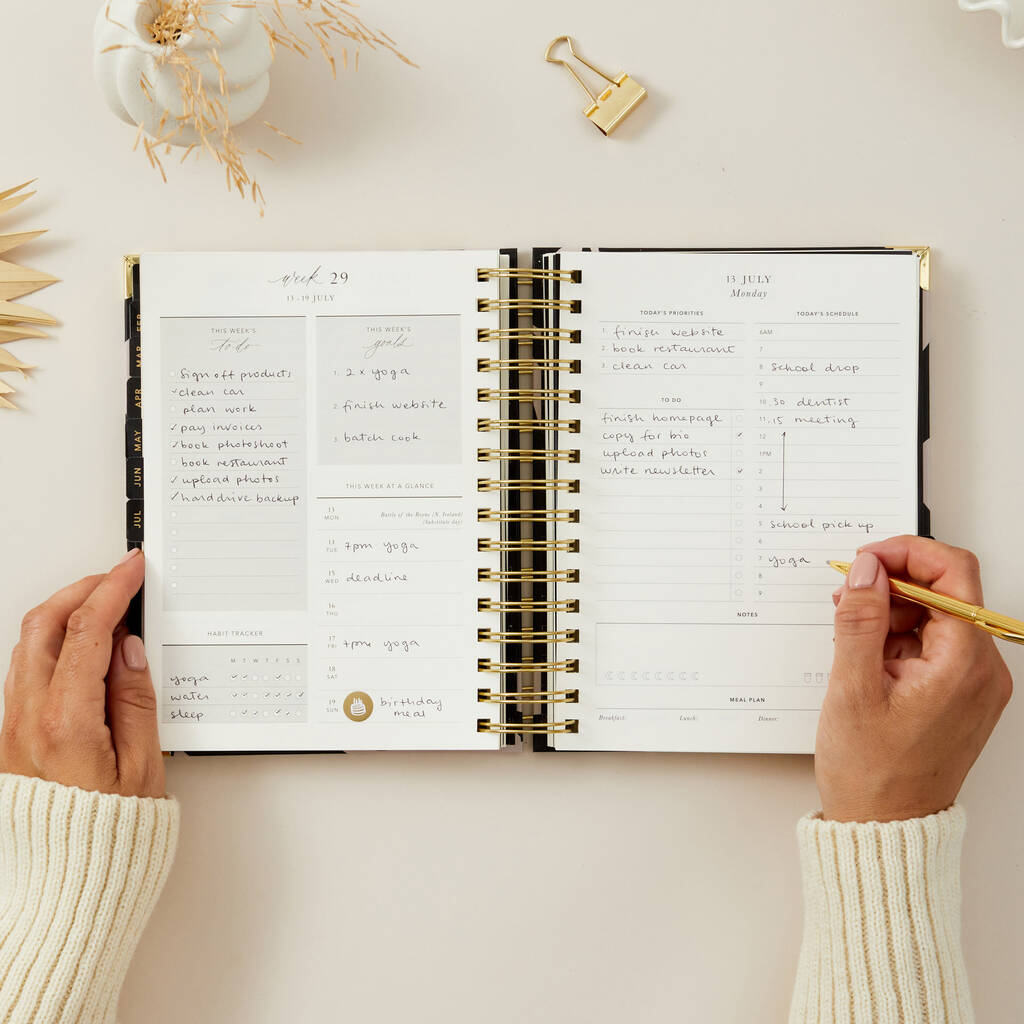 week 29
13 - 19 JULY
THIS WEEK'S
to do
Sign off products
clean car
plan work
pay invoices
book photoshoot
book restaurant
upload photos
hard drive backup
HABIT TRACKER
M T W T F S S
yoga
water
sleep
THIS WEEK'S
goals
1. 2 x yoga
2. finish website
3. batch cook
THIS WEEK AT A GLANCE
13
MON
Battle of the Boyne (N. Ireland)
(Substitute day)
14
TUE
7pm yoga
15
WED
deadline
16
THU
17
FRI
7pm yoga
18
SAT
19
SUN
birthday
meal
FEB
MAR
APR
MAY
JUN
JUL
13 JULY
Monday
TODAY'S PRIORITIES
1. finish website
2. book restaurant
3. clean car
TO DO
finish homepage
copy for bio
upload photos
write newsletter
TODAY'S SCHEDULE
6AM
7
8 school drop
9
10 .30 dentist
11 .15 meeting
12
1PM
2
3
4
5 school pick up
6
7 yoga
8
9
NOTES
MEAL PLAN
Breakfast: Lunch: Dinner: